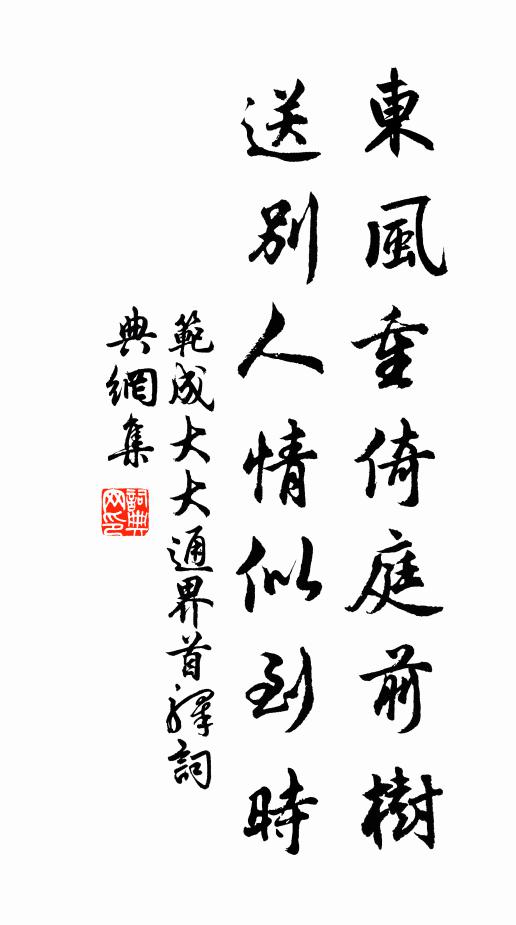 東風重倚庭前樹
送別人情似到時
範成大大通界首釋詞
典網集
詞典网印